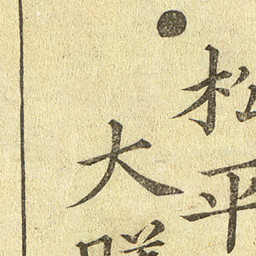 ●松平
大